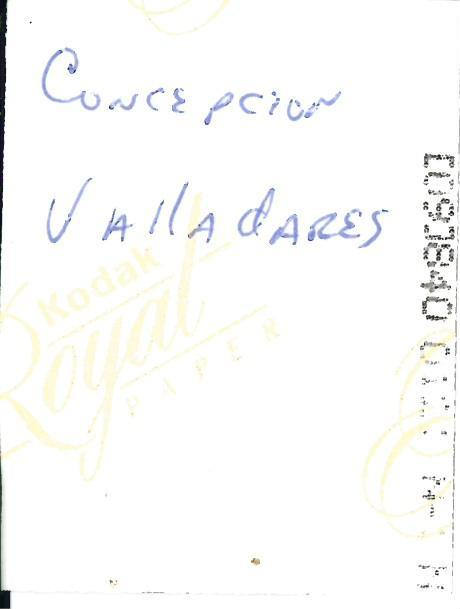 Concepcion
Valladares
Kodak
Royal
PAPER